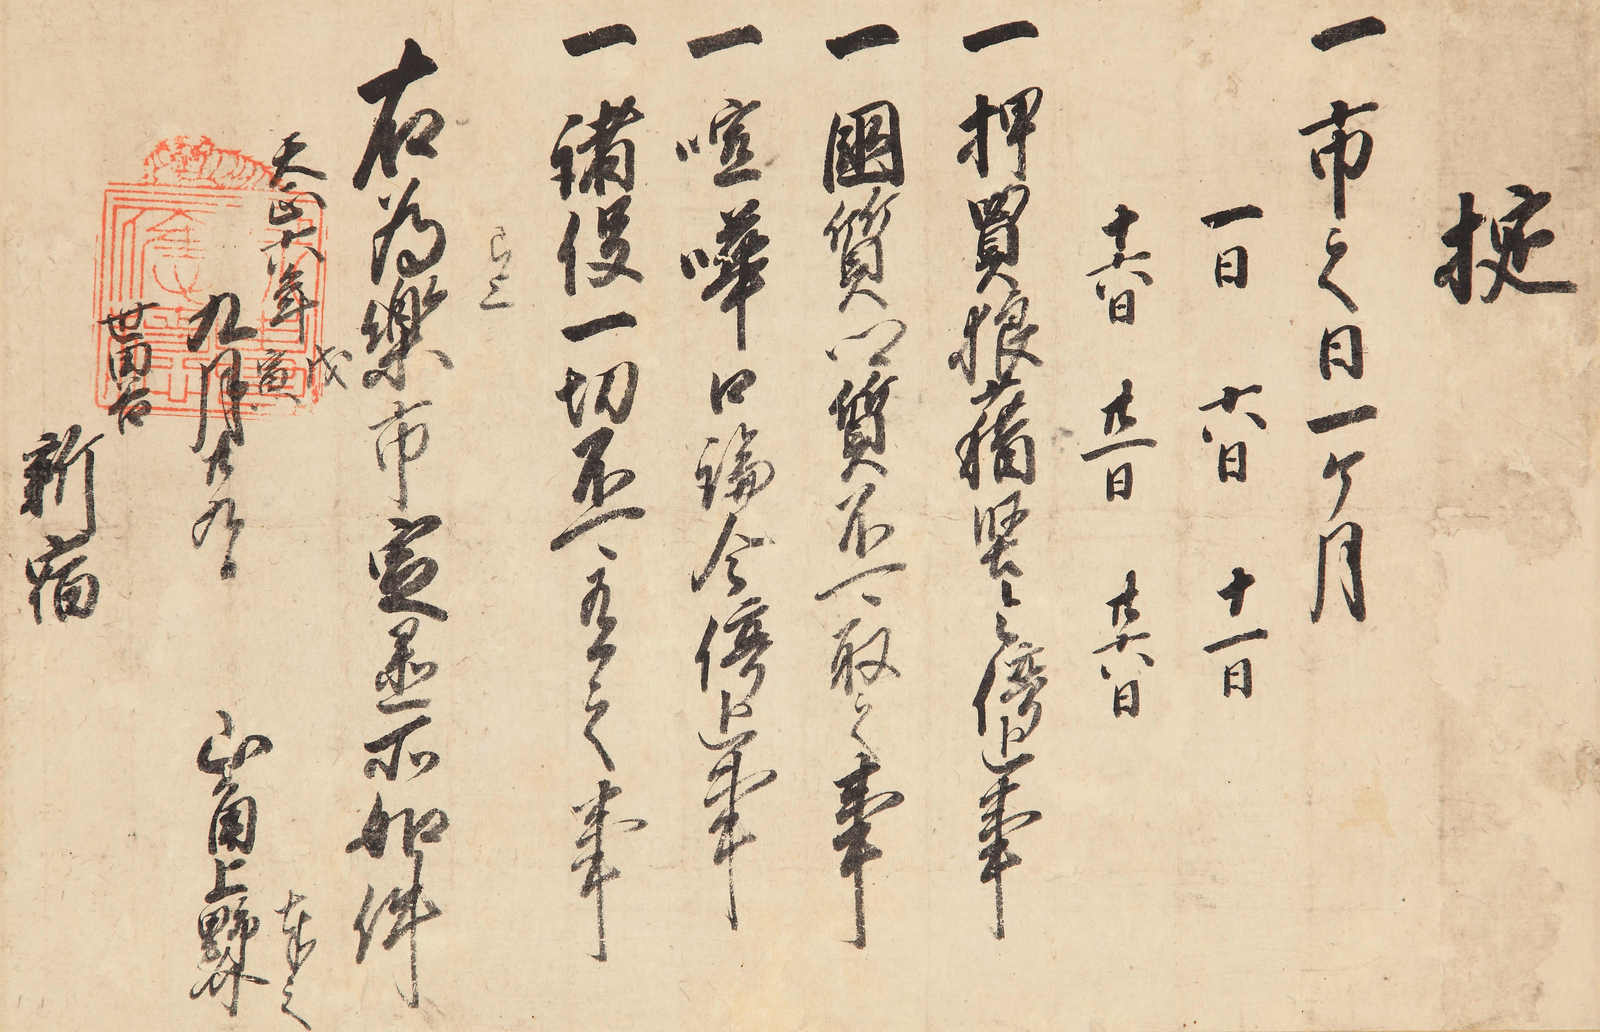 掟
一市之日一ヶ月
一日　六日　十一日
十六日　廿一日　廿六日
一押買狼藉堅令停止事
一國質郷質不可取之事
一喧嘩口論令停止事
一諸役一切不可有之事
已上
右為樂市定置所如件
天正六年戊寅
九月廿九日
山角上野介
奉之
世田谷
新宿